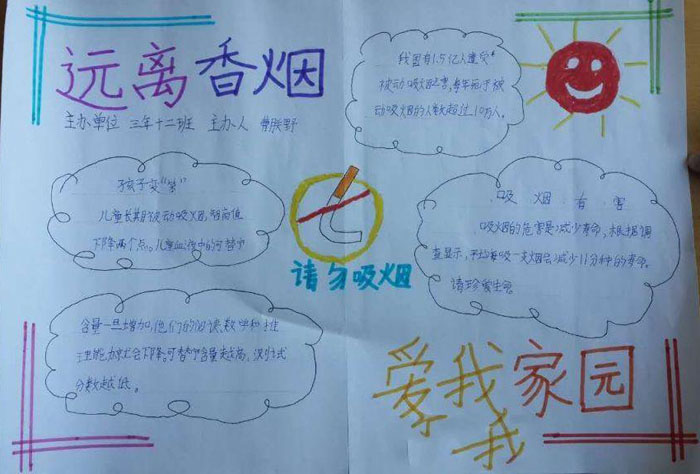 远离香烟
主办单位 三年十二班 主办人
我国有1.5亿人遭受
被动吸烟危害,每年死于被
动吸烟的人数超过10万人。
孩子变"笨"
儿童长期被动吸烟,智商值
下降两个点。儿童血液中的可替宁
含量一旦增加,他们的阅读、数学和推
理能力就会下降,可替宁含量越高,测试
分数越低。
请勿吸烟
吸烟有害
吸烟的危害是减少寿命,根据调
查显示,平均每吸一支烟会减少11分种的寿命。
请珍爱生命
爱我家园
我